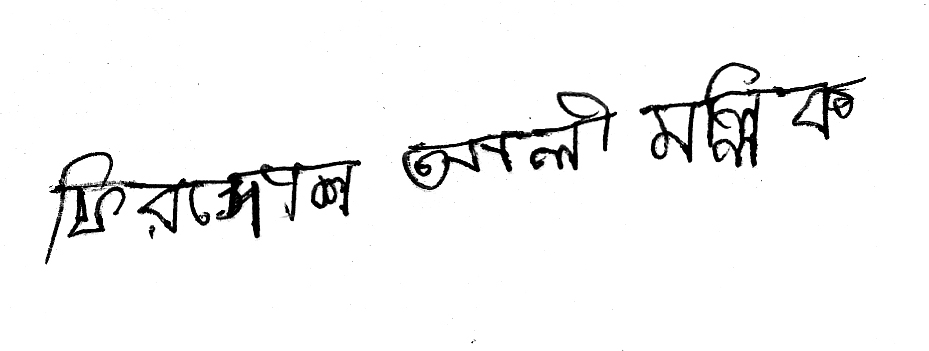 ফিরদোশ আলী মল্লিক